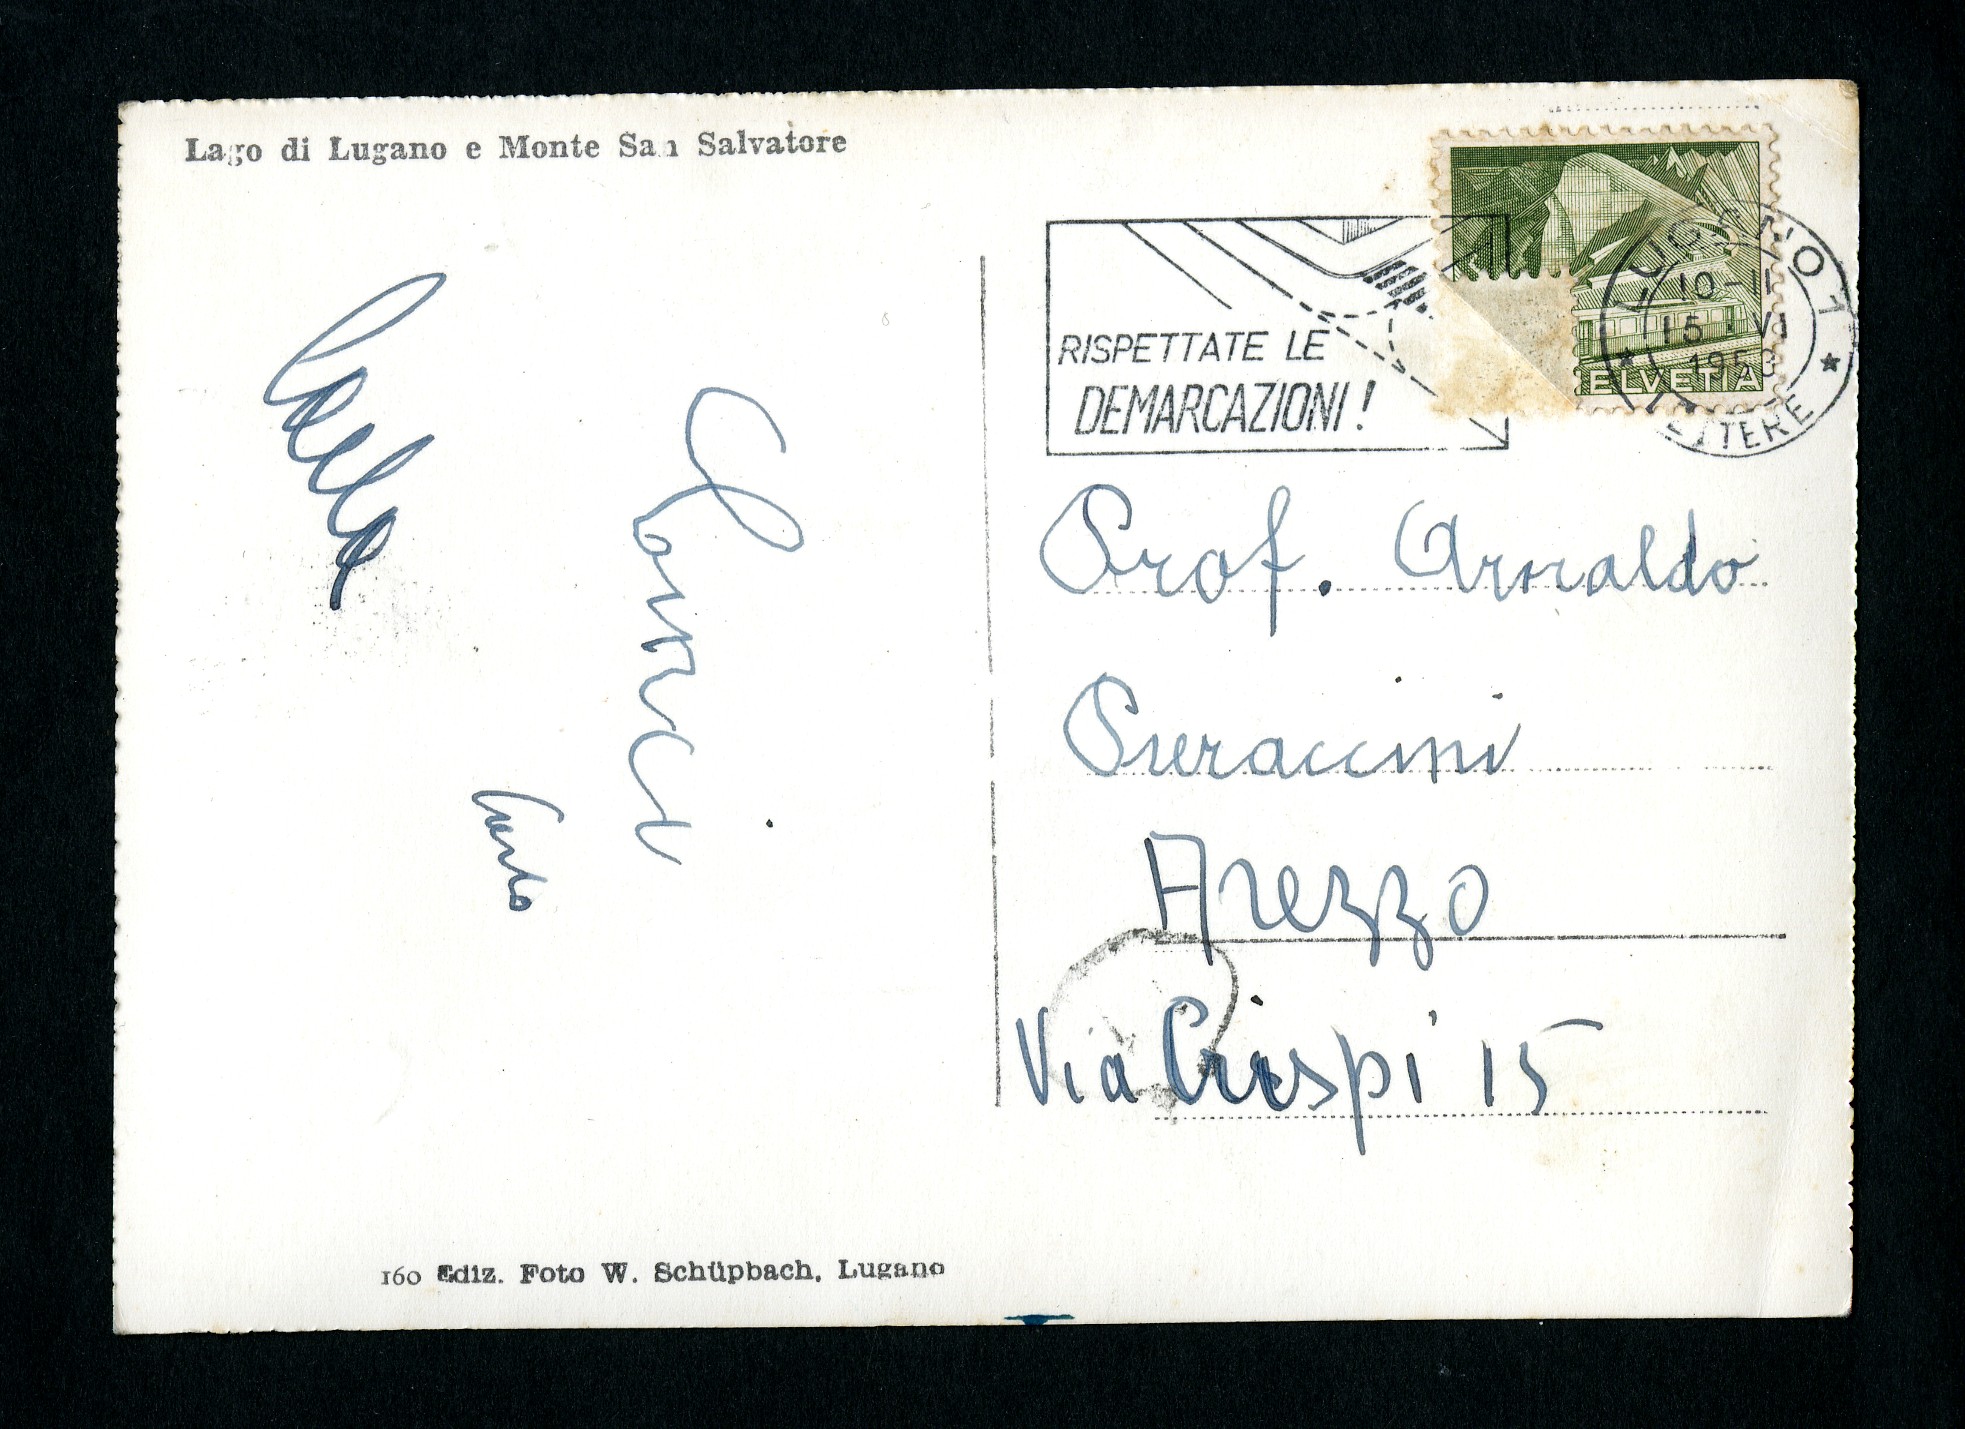 Lago di Lugano e Monte San Salvatore
RISPETTATE LE
DEMARCAZIONI!
HELVETIA
LUGANO 1
10-11
15.VI
1953
LETTERE
Carlo
Prof. Arnaldo
Pieraccini
Arezzo
Via Crispi 15
160 Ediz. Foto W. Schüpbach, Lugano